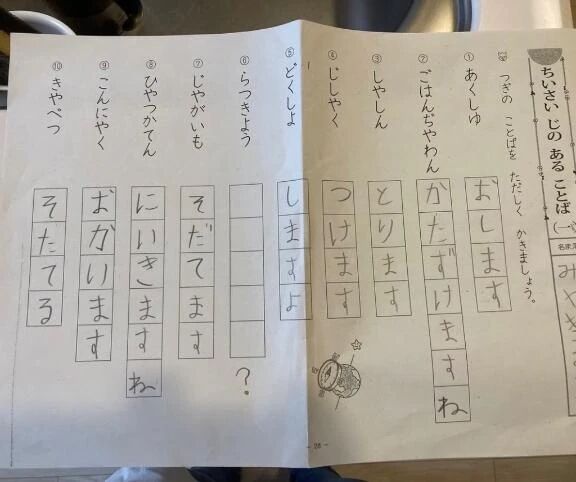 ちいさい じの ある ことば (一)
つぎの ことばを ただしく かきましょう。
① あくしゆ
おします
② ごはんぢやわん
かたずけますね
③ しやしん
とります
④ じしやく
つけます
⑤ どくしよ
しますよ
⑥ らつきよう
?
⑦ じやがいも
そだてます
⑧ ひやつかてん
にいきますね
⑨ こんにやく
おかいます
⑩ きやべつ
そたてる
- 28 -